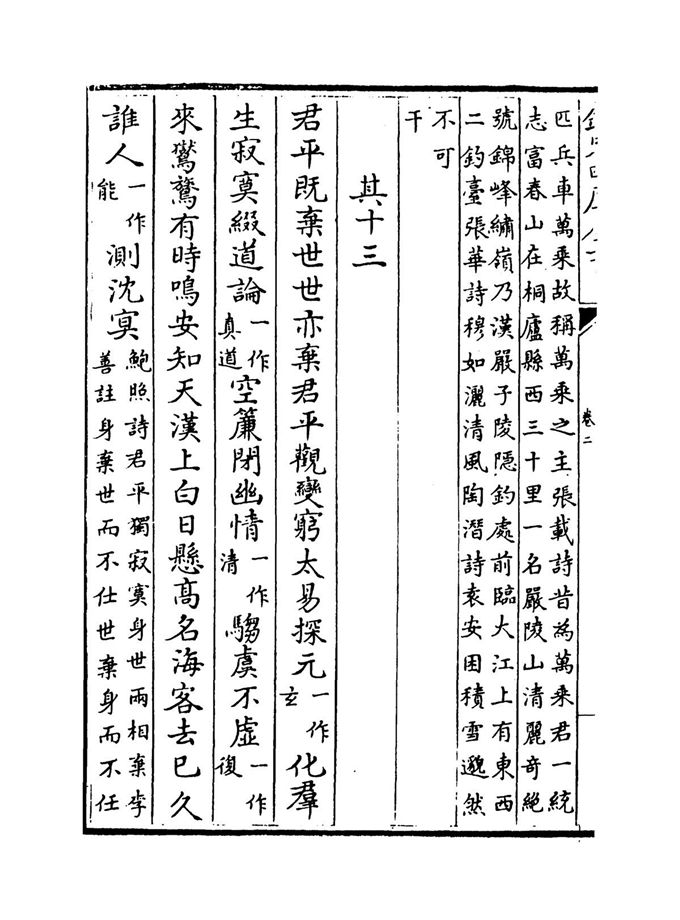 匹兵車萬乘故稱萬乘之主張載詩昔為萬乘君一統
志富春山在桐廬縣西三十里一名嚴陵山清麗奇絶
號錦峰繡嶺乃漢嚴子陵隠釣處前臨大江上有東西
二釣臺張華詩穆如灑清風陶潛詩袁安困積雪邈然
不可
干
其十三
君平既棄世世亦棄君平觀變窮太易探元一作玄化羣
生寂寞綴道論一作真道空簾閉幽情一作清騶虞不虛一作復
來鸑鷟有時鳴安知天漢上白日懸高名海客去已久
誰人一作能測沈冥鮑照詩君平獨寂寞身世兩相棄李
善註身棄世而不仕世棄身而不任
卷二